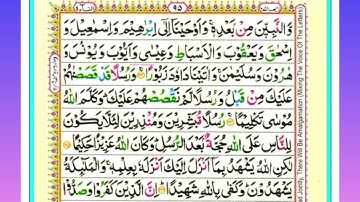 وَالنَّبِيّٖنَ مِنْۢ بَعْدِهٖ ۚ وَاَوْحَيْنَاۤ اِلٰۤى اِبْرٰهِيْمَ وَاِسْمٰعِيْلَ وَ
اِسْحٰقَ وَيَعْقُوْبَ وَالْاَسْبَاطِ وَعِيْسٰى وَاَيُّوْبَ وَيُوْنُسَ وَ
هٰرُوْنَ وَسُلَيْمٰنَ ۚ وَاٰتَيْنَا دَاوٗدَ زَبُوْرًا ۚ وَرُسُلًا قَدْ قَصَصْنٰهُمْ
عَلَيْكَ مِنْ قَبْلُ وَرُسُلًا لَّمْ نَقْصُصْهُمْ عَلَيْكَ ؕ وَكَلَّمَ اللّٰهُ
مُوْسٰى تَكْلِيْمًا ۚ رُسُلًا مُّبَشِّرِيْنَ وَمُنْذِرِيْنَ لِئَلَّا يَكُوْنَ
لِلنَّاسِ عَلَى اللّٰهِ حُجَّةٌۢ بَعْدَ الرُّسُلِ ؕ وَكَانَ اللّٰهُ عَزِيْزًا حَكِيْمًا
لٰكِنِ اللّٰهُ يَشْهَدُ بِمَاۤ اَنْزَلَ اِلَيْكَ اَنْزَلَهٗ بِعِلْمِهٖ ۚ وَالْمَلٰٓئِكَةُ
يَشْهَدُوْنَ ؕ وَكَفٰى بِاللّٰهِ شَهِيْدًا ؕ اِنَّ الَّذِيْنَ كَفَرُوْا وَصَدُّوْا
ad Jointly, There Will Be Amalgamation (Mixing The Voice Of The Letters)